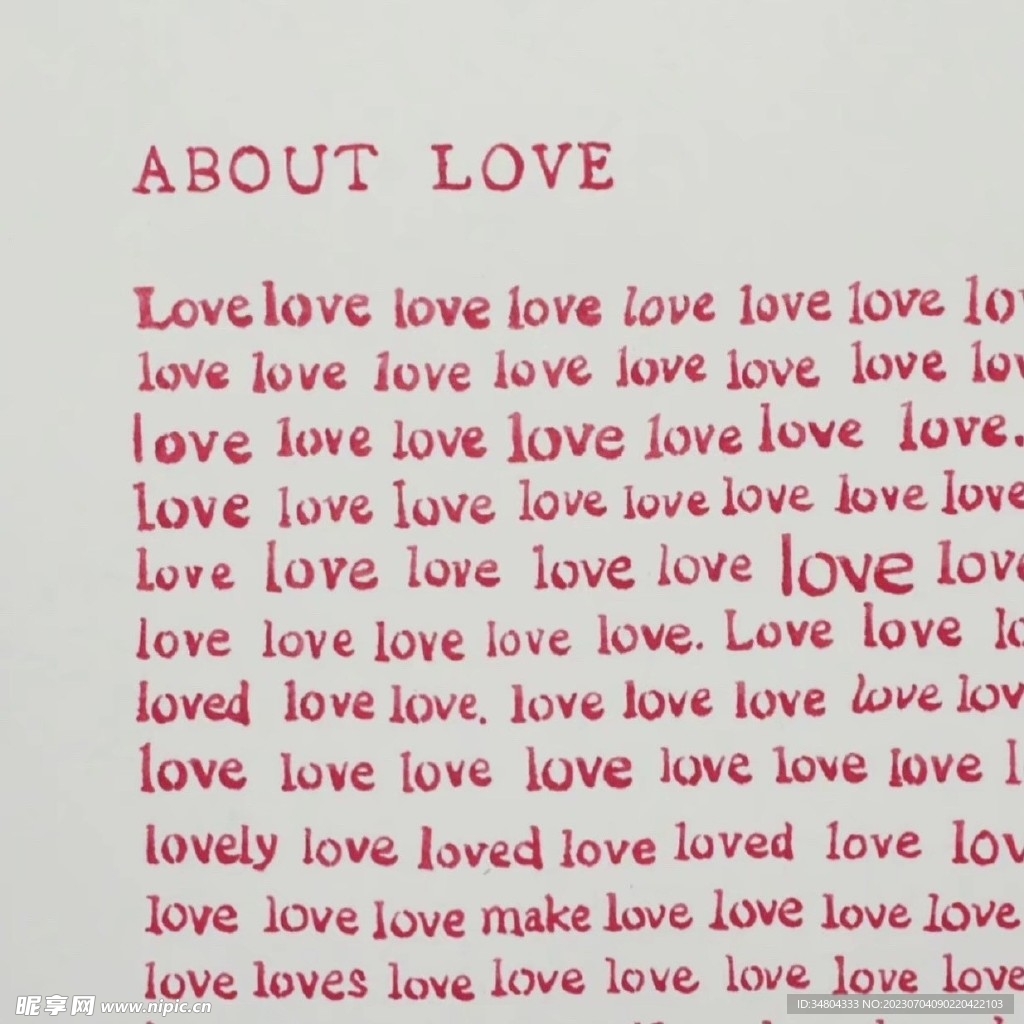 ABOUT LOVE
Love love love love love love love lov
love love love love love love love lov
love love love love love love love.
love love love love love love love love
love love love love love love love
love love love love love. Love love lo
loved love love. love love love love lov
love love love love love love love l
lovely love loved love loved love lov
love love love make love love love love
love loves love love love love love love
昵享网 www.nipic.cn
ID:34804333 NO:20230704090220422103